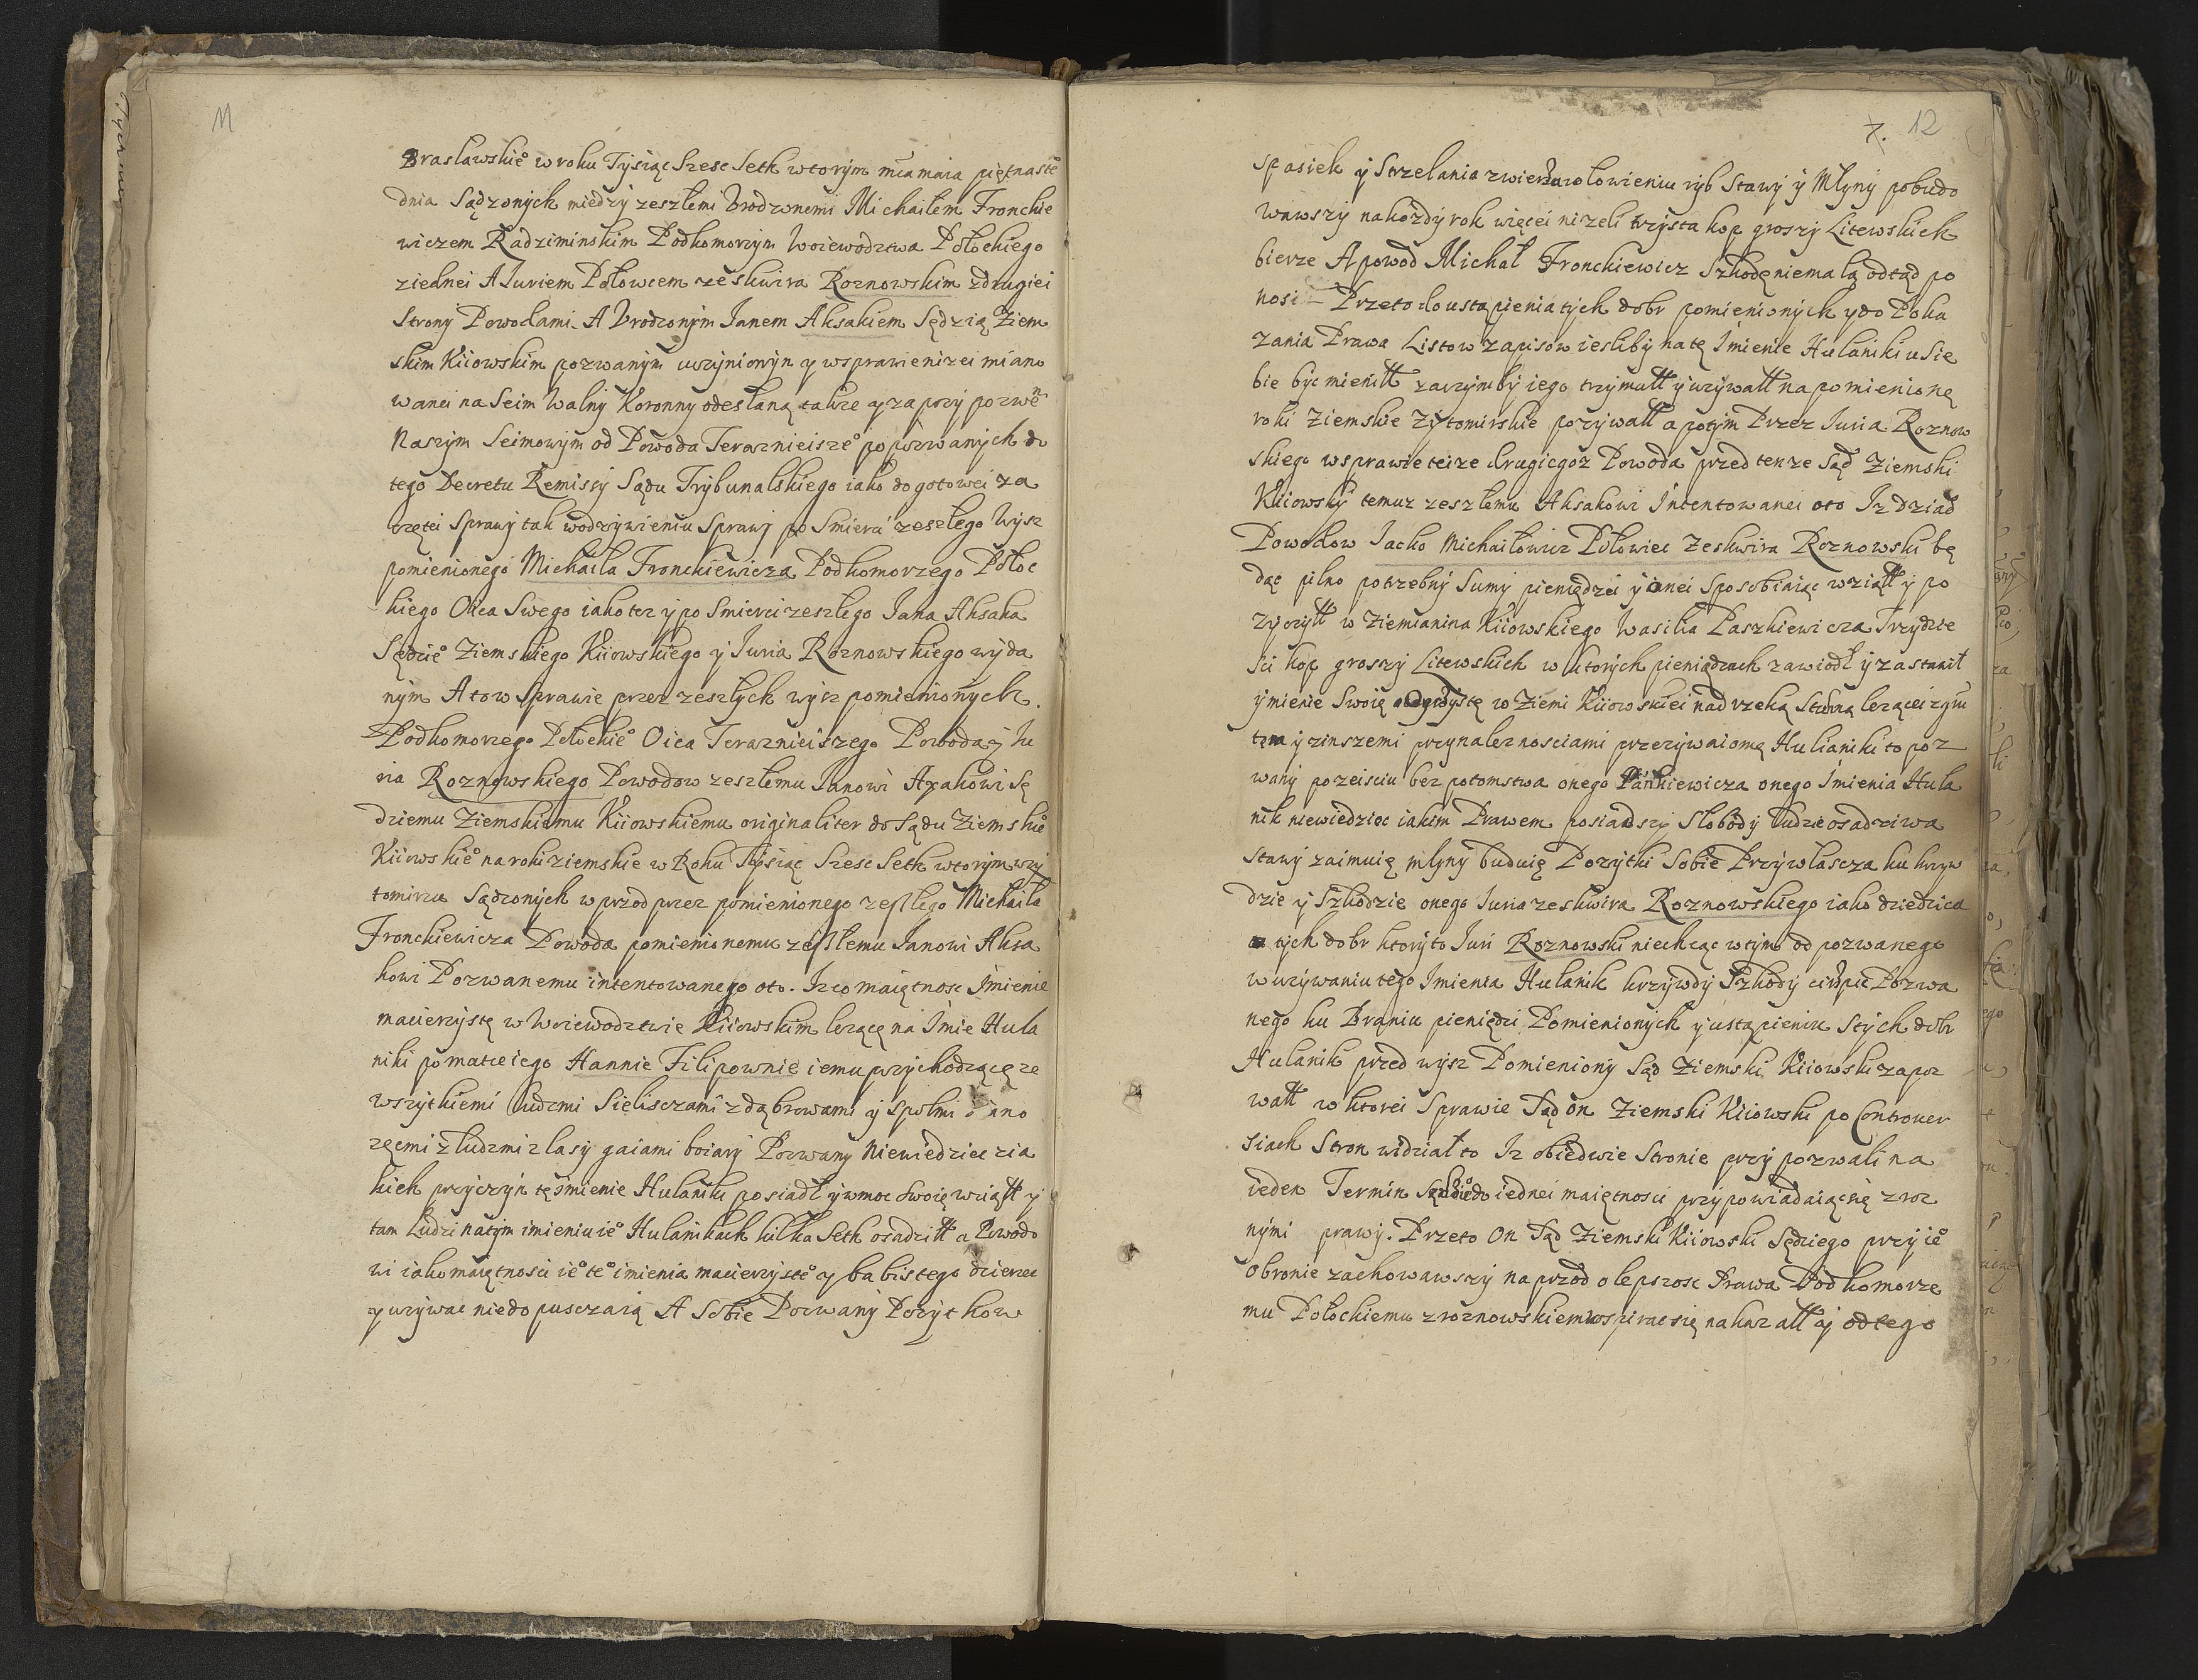 11
Brasławskie° w roku Tysiąc Szesc Seth wtorym mca maia piętnaste°
dnia Sądzonych miedzy zeszłemi Vrodzonemi Michaiłem Fronckie
wiczem Radziminskim Podkomorzym Woiewodztwa Połockiego
ziednei A Iuriem Połowcem ze skwira Roznowskim zdrugiei
Strony Powodami A Vrodzonym Ianem Aksakiem Sędzią Ziem
skim Kiiowskim pozwanym uczynionym y wsprawie nizei miano
wanei na Seim Walny Koronny odesłaną także y za przy pozwen
Naszym Seimowym od Powoda Teraznieisze° po pozwanych do
tego Decretu Remissy Sądu Trybunalskiego iako do gotowei za
czętei Sprawy tak wodzywieniu Sprawy po Smierci zeszłego Wysz
pomienionego Michaila Fronckiewicza Podkomorzego Połoc
kiego Oica Swego iako tez y po Smierci zeszłego Jana Aksaka
Sędzie° Ziemskiego Kiiowskiego y Iuria Roznowskiego wyda
nym A to w Sprawie przez zeszłych wysz pomienionych
Podkomorzego Połockie° Oica Teraznieiszego Powoda y Iu
ria Roznowskiego Powodow zeszłemu Janowi Axakowi Sę
dziemu Ziemskiemu Kiiowskiemu originaliter do Sądu Ziemskie°
Kiiowskie° na roki ziemskie w Roku Tysiąc Szesc Seth wtorym w Zy
tomirzu Sądzonych w przod przez pomienionego zeszłego Michaiła
Fronckiewicza Powoda pomienionemu zeszłemu Janowi Aksa
kowi Pozwanemu intentowanego oto. Iz co maiętnosc Imienie
macierzystę w Woiewodztwie Kiiowskim lezącę na Imie Hula
niki po matce iego Hannie Filipownie iemu przychodzącę ze
wszytkiemi ludzmi Sieliszczami z dąbrowami y Spolmi
zęmi z ludzmi z lasy gaiami boiary Pozwany Niewiedziec zia
kich przyczyn tę imienie Hulaniki posiadł y w moc Swoię wziątt y
tam Ludzi na tym imieniu ie° Hulanikach kilka Seth osadzitt a Powodo
wi iako maiętnosci ie° te° imienia macierzyste° y babistego dzierzec
y uzywac niedopuszczaią A Sobie Pozwany Pozytkow
7. 12
Spasiek y Strzelania zwierzu łowieniu ryb Stawy y Młyny pobudo
wawszy na kozdy rok więcei nizeli trzysta kop groszy Litewskich
bierze A powod Michał Fronckiewicz Szkodę niemałą odtąd po
nosi – Przeto do ustąpienia tych dobr pomienionych y do Poka
zania Prawa Listow zapisow iesliby na tę Imienie Hulaniki u Sie
bie byc mienitt zaczymby iego trzymatt y uzywatt na pomienionę
roki ziemskie Zytomirskie pozywatt a potym Przez Iuria Roznow
skiego wsprawie teize drugiegoz Powoda przed tenze Sąd Ziemski
Kiiowsky temuz zeszłemu Aksakowi Intentowanei oto Iz dziad
Powodow Iacko Michaiłowicz Połowiec Zeskwira Roznowski bę
dąc pilno potrzebny Sumy pieniędzei y onei Sposobiaiąc wziątt y po
zyczytt w Ziemianina Kiiowskiego Wasilia Paszkiewicza Trzydzie
sci kop groszy Litewskich w ktorych pieniądzach zawiodł y zastawił
ymienie Swoię w Ziemi Kiiowskiei nad rzeką Stubną lezącei zgru
tem y zinszemi przynaleznosciami przezywaiomę Hulianiki to poz
wany po zeisciu bez potomstwa onego Pankiewicza onego Imienia Hula
nik niewiedziec iakim Prawem posiadszy Słobody ludzie osadziwa
Stawy zaimuię młyny buduię Pozytki Sobie Przywłaszcza ku krzyw
dzie y Szkodzie onego Iuria zeskwira Roznowskiego iako dziedzica
tych dobr ktory to Iuri Roznowski niechcąc wtym od pozwanego
w uzywaniu tego Imienia Hulanik krzywdy Szkody cirpiec Pozwa
nego ku Braniu pieniędzi Pomienionych y ustąpieniu Stych dobr
Hulanik przed wysz Pomieniony Sąd Ziemski Kiiowski zapoz
watt w ktorei Sprawie Sąd on Ziemski Kiiowski po Controuer
siach Stron widział to Iz obiedwie Stronie przy pozwali na
ieden Termin do iednei maiętnosci przypowiadaiąc się z roz
nymi prawy. Przeto On Sąd Ziemski Kiiowski Sędziego przy ie°
obronie zachowawszy na przod o lepszosc Prawa Podkomorze
mu Połockiemu z roznowskiem wspirac się nakazatt y od tego